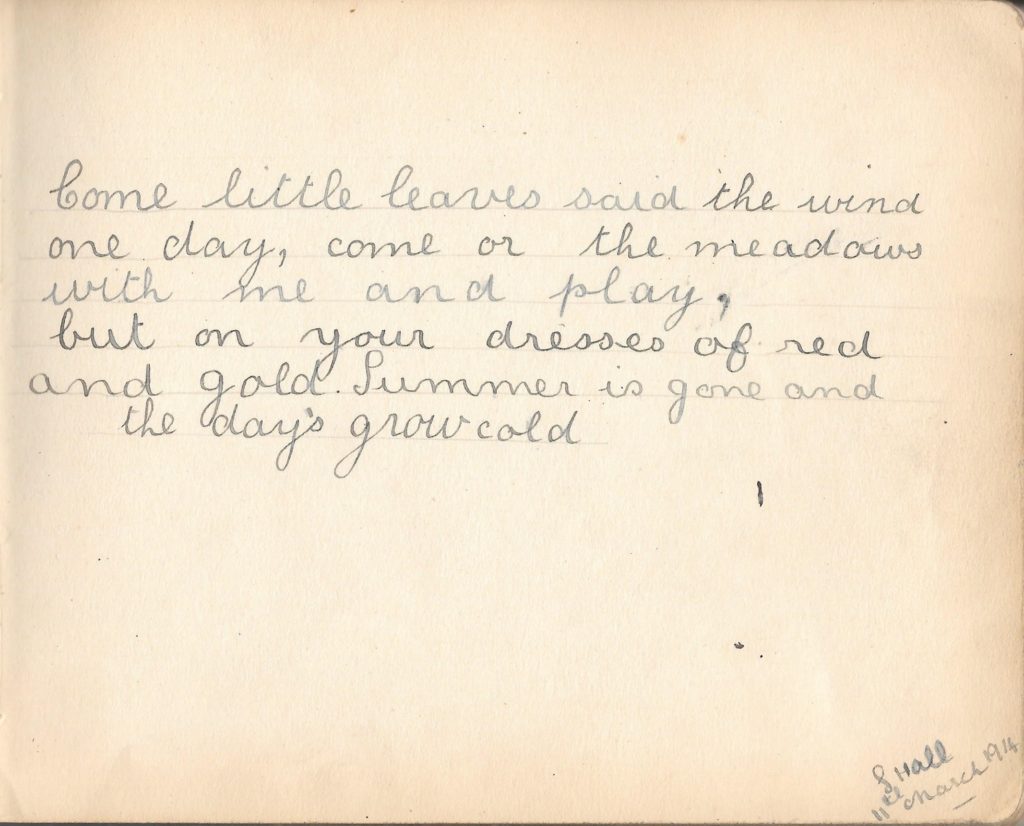 Come little leaves said the wind
one day, come or the meadows
with me and play,
but on your dresses of red
and gold. Summer is gone and
the day's grow cold
S Hall
11th March 1914